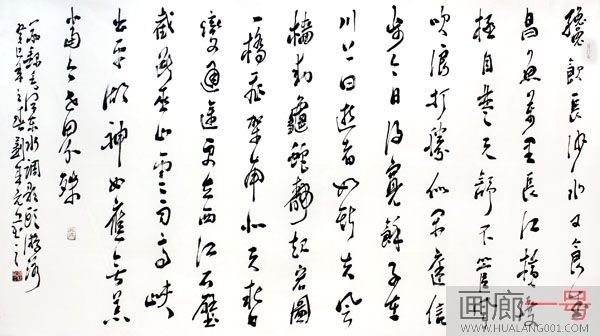 纔飲長沙水又食武
昌魚萬里長江橫渡
極目楚天舒不管風
吹浪打勝似閒庭信
步今日得寬餘子在
川上曰逝者如斯夫風
檣動龜蛇靜起宏圖
一橋飛架南北天塹
變通途更立西江石壁
截斷巫山雲雨高峽
出平湖神女應無恙
當今世界殊
錄毛澤東水調歌頭游泳
癸巳年之
画廊一号
WWW.HUALANG001.COM